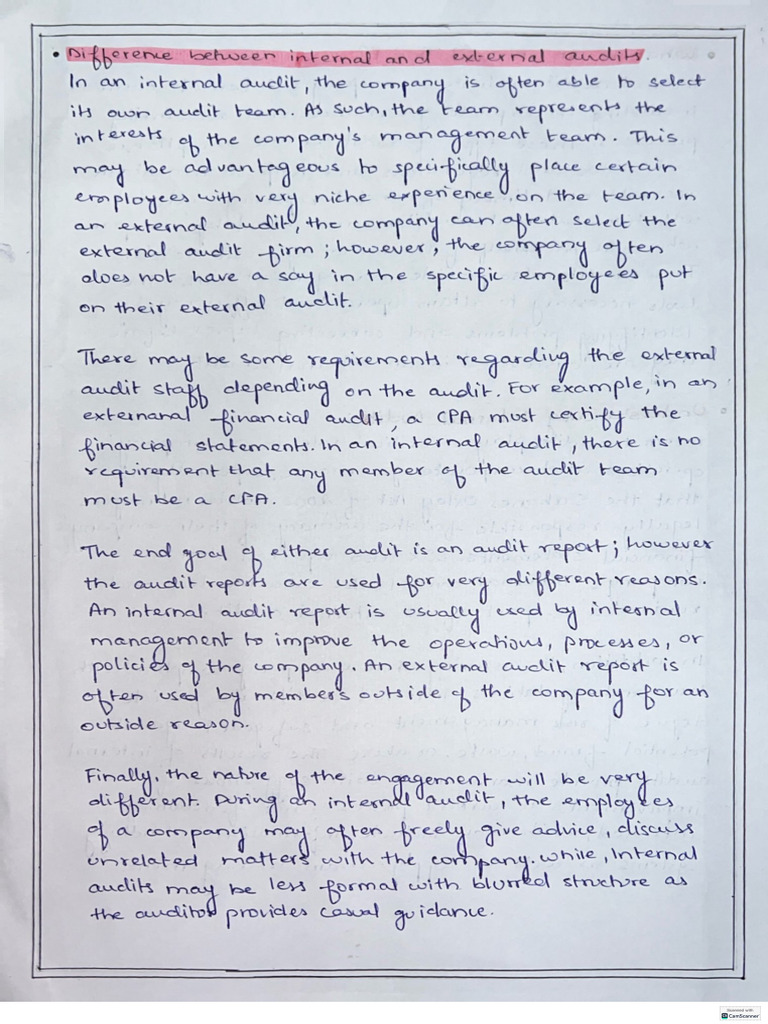 • Difference between internal and external audits.
In an internal audit, the company is often able to select
its own audit team. As such, the team represents the
interests of the company's management team. This
may be advantageous to specifically place certain
employees with very niche experience on the team. In
an external audit, the company can often select the
external audit firm; however, the company often
does not have a say in the specific employees put
on their external audit.
There may be some requirements regarding the external
audit staff depending on the audit. For example, in an
externanal financial audit, a CPA must certify the
financial statements. In an internal audit, there is no
requirement that any member of the audit team
must be a CPA.
The end goal of either audit is an audit report; however
the audit reports are used for very different reasons.
An internal audit report is usually used by internal
management to improve the operations, processes, or
policies of the company. An external audit report is
often used by members outside of the company for an
outside reason.
Finally, the nature of the engagement will be very
different. During an internal audit, the employees
of a company may often freely give advice, discuss
unrelated matters with the company. while, Internal
audits may be less formal with blurred structure as
the auditor provides casual guidance.
Scanned with
CamScanner